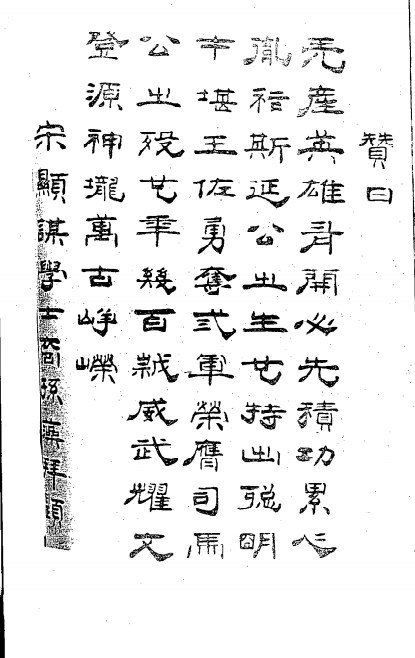 贊曰
天產英雄有開必先積功累仁
胤祚斯延公之生也特出聰明
才堪王佐勇奪弎軍榮膺司馬
公之歿也年幾百越威武耀文
登源神壠萬古崢嶸
宋顯謨學士裔孫藻拜題